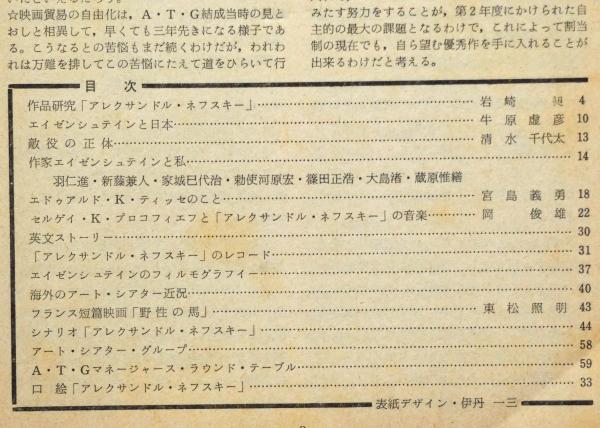 ☆映画貿易の自由化は，A・T・G結成当時の見と
おしと相異して，早くても三年先きになる様子であ
る。こうなるとの苦悩もまだ続くわけだが，われわ
れは万難を排してこの苦悩にたえて道をひらいて行
みたす努力をすることが，第2年度にかけられた自
主的の最大の課題となるわけで，これによって割当
制の現在でも，自ら望む優秀作を手に入れることが
出来るわけだと考える。
目 次
作品研究「アレクサンドル・ネフスキー」 岩崎 昶 4
エイゼンシュテインと日本 牛原虚彦 10
敵役の正体 清水千代太 13
作家エイゼンシュテインと私 14
羽仁進・新藤兼人・家城巳代治・勅使河原宏・篠田正浩・大島渚・蔵原惟繕
エドゥアルド・K・ティッセのこと 宮島義勇 18
セルゲイ・K・プロコフィエフと「アレクサンドル・ネフスキー」の音楽 岡 俊雄 22
英文ストーリー 30
「アレクサンドル・ネフスキー」のレコード 31
エイゼンシュテインのフィルモグラフイー 37
海外のアート・シアター近況 40
フランス短篇映画「野性の馬」 東松照明 43
シナリオ「アレクサンドル・ネフスキー」 44
アート・シアター・グループ 58
A・T・Gマネージャース・ラウンド・テーブル 59
口 絵「アレクサンドル・ネフスキー」 33
表紙デザイン・伊丹 一三